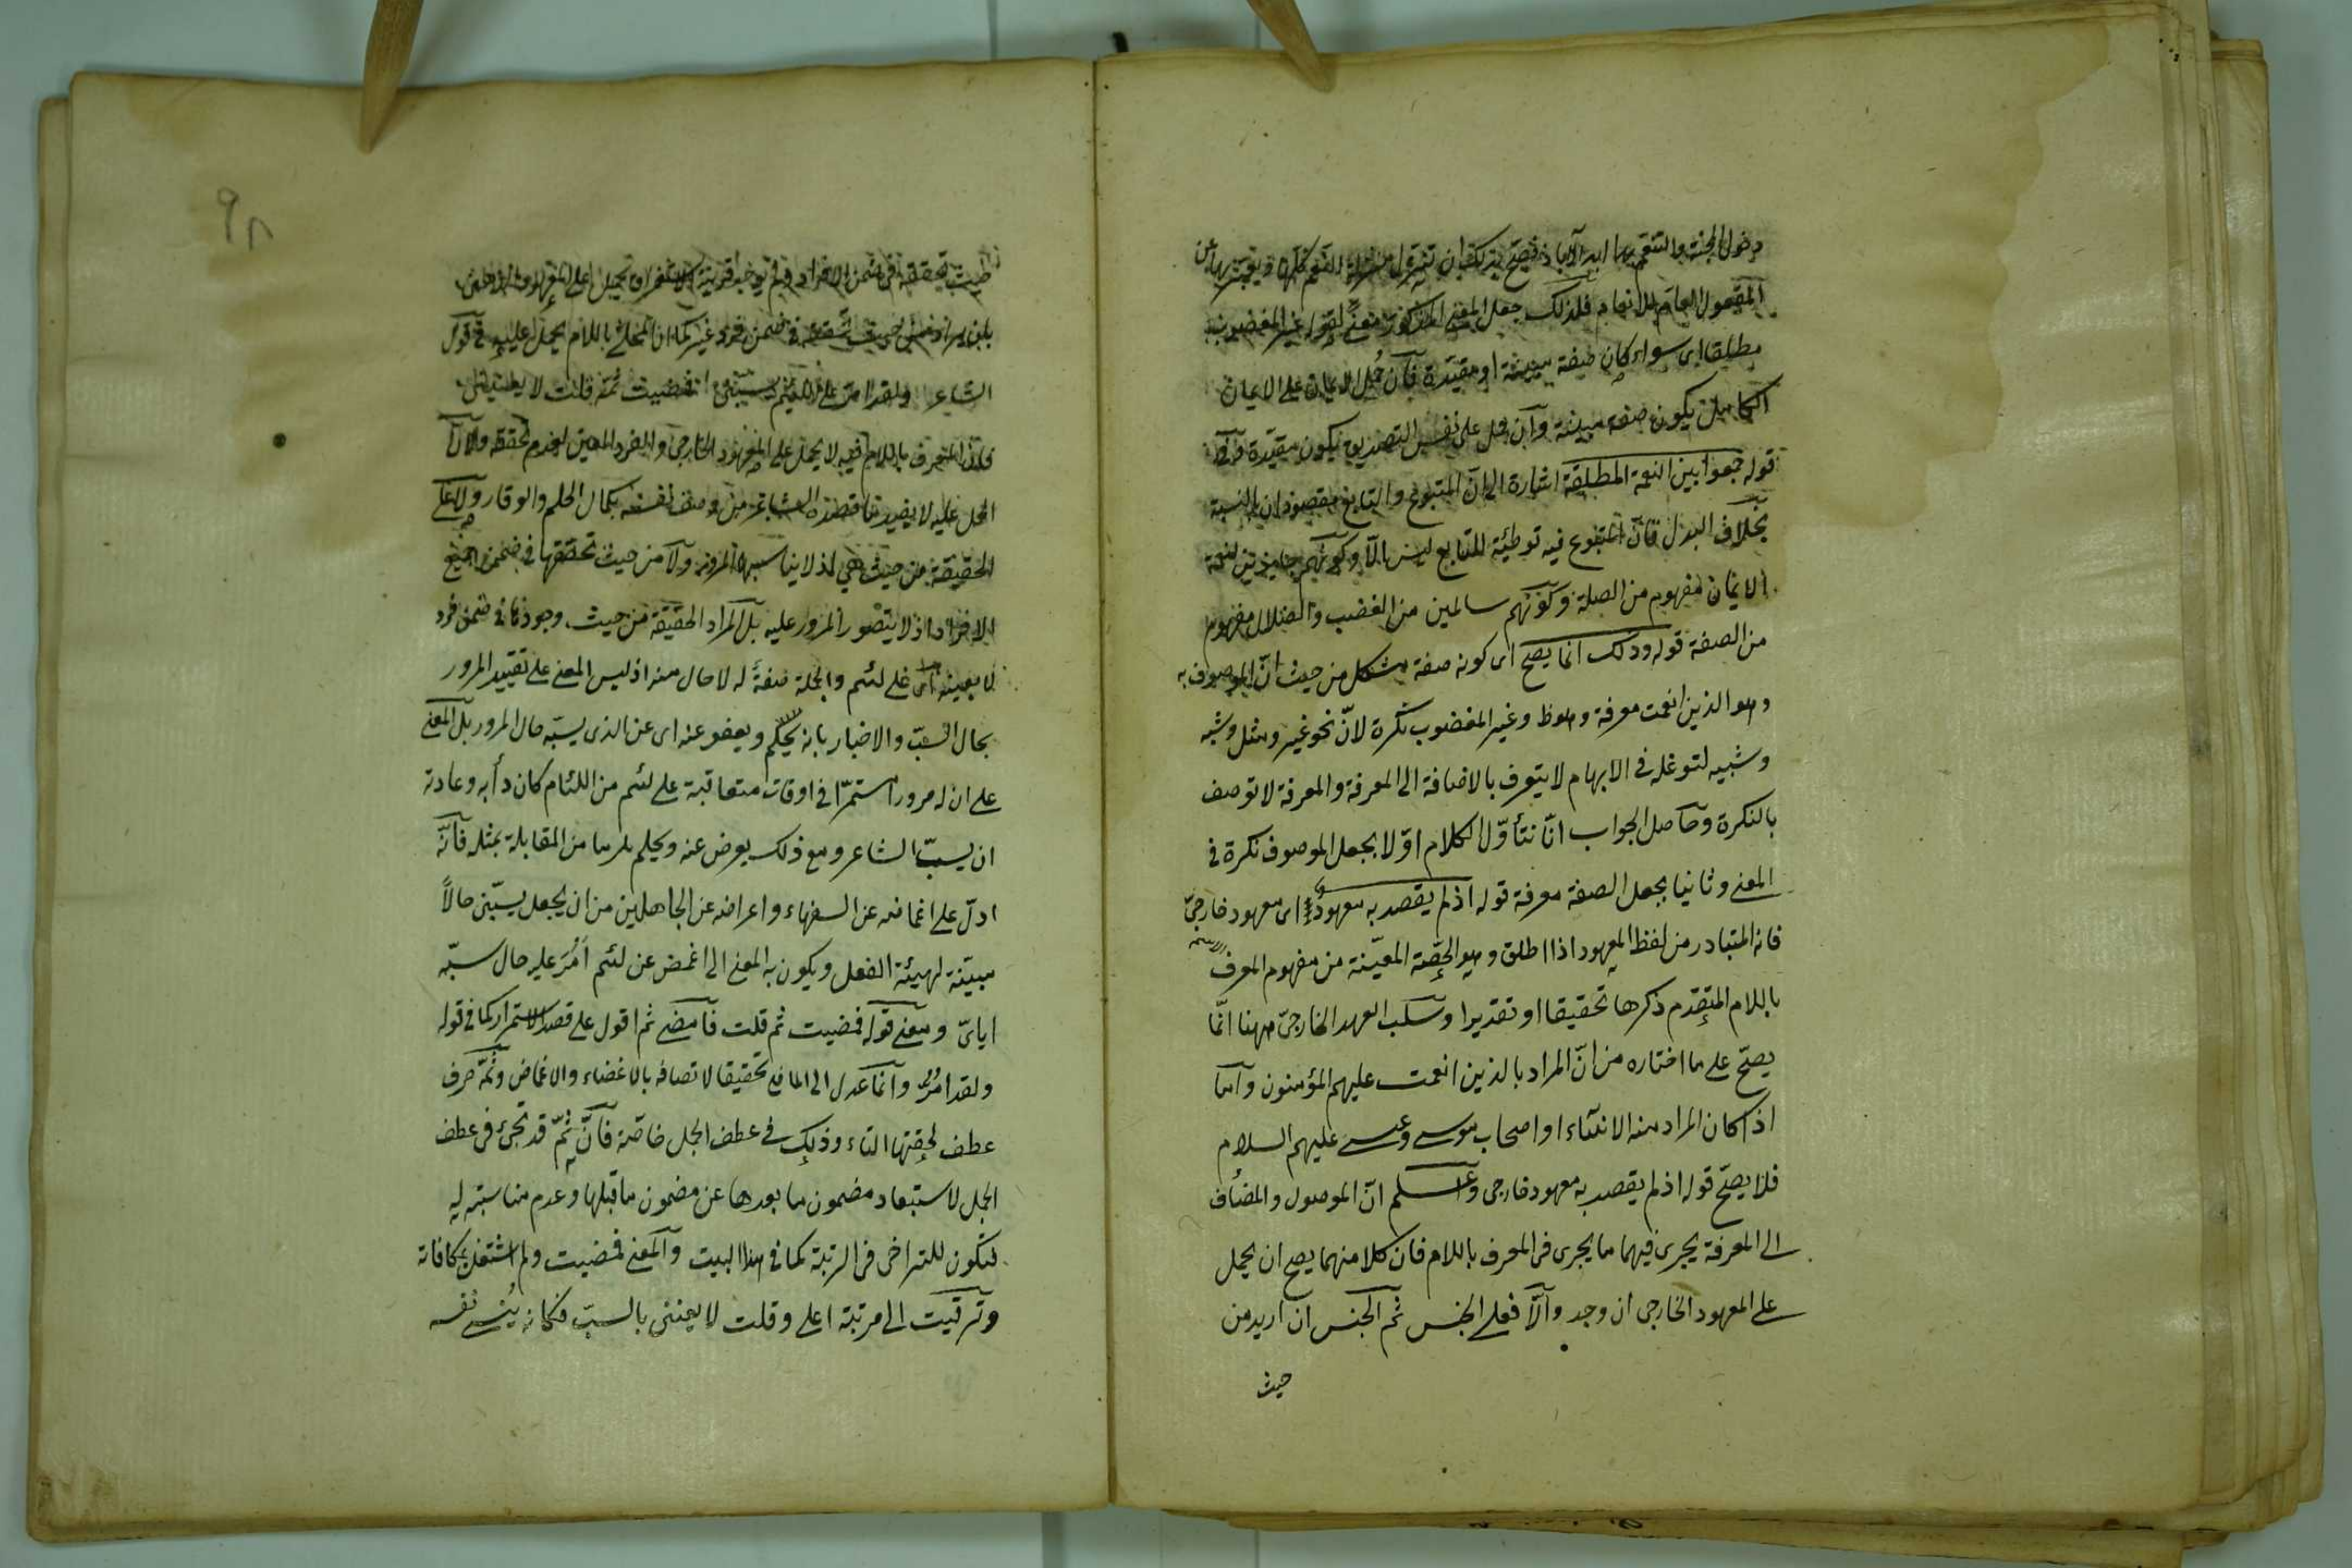 دخول الجنة والتنعم بها ابد الآباد فيصح بذلك ان تنزل منزلة النعم كلها ويعبر بها عن
المفعول العام للانعام فلذلك جعل المعنى المذكور معنى لقوله غير المغضوب
مطلقا اى سواء كان صفة مبينة او مقيدة فان حُمل الايمان على الايمان
الكامل يكون صفة مبينة وان حمل على نفس التصديق يكون مقيدة
قوله جمعوا بين النعمة المطلقة اشارة الى ان المتبوع والتابع مقصودان بالنسبة
بخلاف البدل فان المتبوع فيه توطئة للتابع ليس الا وكونهم جامعين لنعمة
الايمان مفهوم من الصلة وكونهم سالمين من الغضب والضلال مفهوم
من الصفة قوله وذلك انما يصح اى كونه صفة مشكل من حيث ان الموصوف به
وهو الذين انعمت معرفة وهو ظ وغير المغضوب نكرة لانّ نحو غير ومثل وشبه
وشبيه لتوغله فى الابهام لا يتعرف بالاضافة الى المعرفة والمعرفة لا توصف
بالنكرة وحاصل الجواب انّا نتأوّل الكلام اوّلا بجعل الموصوف نكرة فى
المعنى وثانيا بجعل الصفة معرفة قوله اذ لم يقصد به معهود اى معهود خارجىّ
فانه المتبادر من لفظ المعهود اذا اطلق وهو الحصّة المعيّنة من مفهوم المعرف
باللام المتقدم ذكرها تحقيقا او تقديرا وسلب العهد الخارجىّ ههنا انّما
يصحّ على ما اختاره من انّ المراد بالذين انعمت عليهم المؤمنون واما
اذا كان المراد منه الانبياء او اصحاب موسى وعيسى عليهم السلام
فلا يصحّ قوله اذ لم يقصد به معهود خارجى واعلم انّ الموصول والمضاف
الى المعرفة يجرى فيهما ما يجرى فى المعرف باللام فان كلا منهما يصح ان يحمل
على المعهود الخارجى ان وجد والّا فعلى الجنس ثم الجنس ان اريد من
حيث
٩٨
حيث تحققه فى ضمن الافراد ولم يوجد قرينة الاستغراق يحمل على المعهود الذهنى
بان يراد من حيث تحققه فى ضمن فرد غير كما ان المحلى باللام يحمل عليه فى قول
الشاعر ولقد امرّ على اللئيم يسبّنى فمضيت ثمّة قلت لا يعنينى
فان المعرف باللام فيه لا يحمل على المعهود الخارجى والفرد المعين لعدم تحققه ولان
الحمل عليه لا يفيد ما قصده الشاعر من وصف نفسه بكمال الحلم والوقار ولا على
الحقيقة من حيث هى اذ لا يناسبها المرور ولا من حيث تحققها فى ضمن جميع
الافراد اذ لا يتصور المرور عليه بل المراد الحقيقة من حيث وجودها فى ضمن فرد
لا بعينه اى على لئيم والجملة صفةً له لا حال منه اذ ليس المعنى على تقييد المرور
بحال السّب والاخبار بانه يحكم ويعفو عنه اى عن الذى يسبّه حال المرور بل المعنى
على ان له مرورا مستمرّا فى اوقات متعاقبة على لئيم من اللئام كان دأبه وعادته
ان يسبّ الشاعر ومع ذلك يعرض عنه ويحلم من المقابلة بمثله فانّه
ادلّ على اغماضه عن السفهاء واعراضه عن الجاهلين من ان يجعل يسبّنى حالاً
مبيّنة لهيئة الفعل ويكون به المعنى الى اغمض عن لئيم اَمُرّ عليه حال سبّه
اياىّ ومعنى قوله فمضيت ثم قلت فامضى ثم اقول على قصد الاستمرار كما فى قوله
ولقد امُرّ وانما عدل الى الماضى تحقيقا لاتصافه بالاغضاء والاغماض وثمّة حرف
عطف لحقتها التاء وذلك فى عطف الجمل خاصّة فانّ ثمّ قد تجئ فى عطف
الجمل لاستبعاد مضمون ما بعدها عن مضمون ما قبلها وعدم مناسبته له
فتكون للتراخى فى الرتبة كما فى هذا البيت والمعنى فمضيت ولم اشتغل بمكافاته
وترقيت الى مرتبة اعلى وقلت لا يعنينى بالسبّ فكانه نفسه